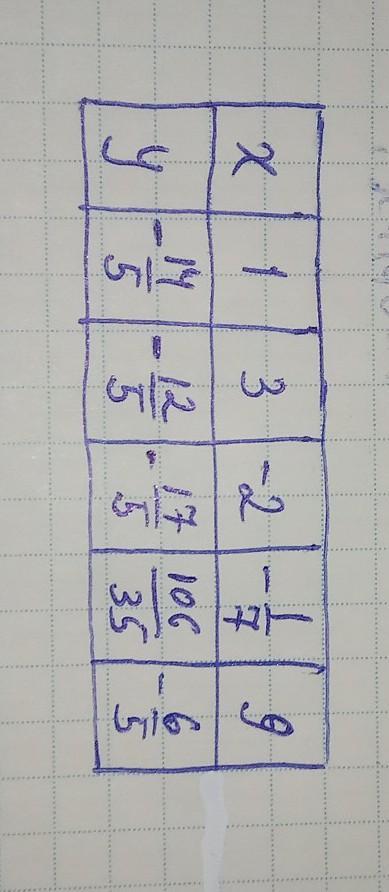 x 1 3 -2 -1/7 9
y -14/5 -12/5 -17/5 106/35 -6/5